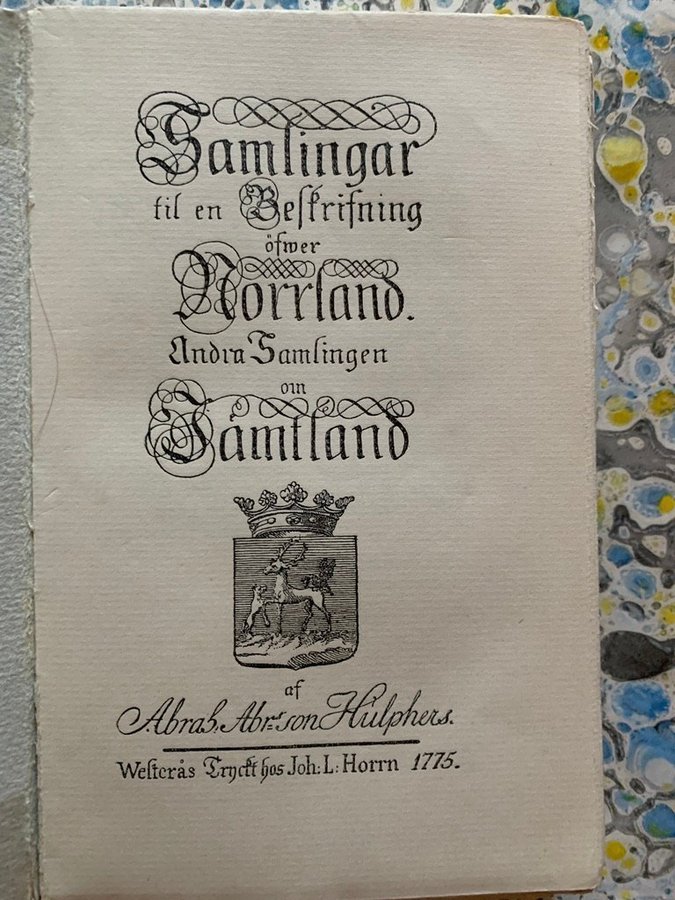 Samlingar
til en Beskrifning
öfwer
Norrland.
Andra Samlingen
om
Jämtland
af
Abrah. Abr:son Hülphers.
Westerås Tryckt hos Joh: L: Horrn 1775.